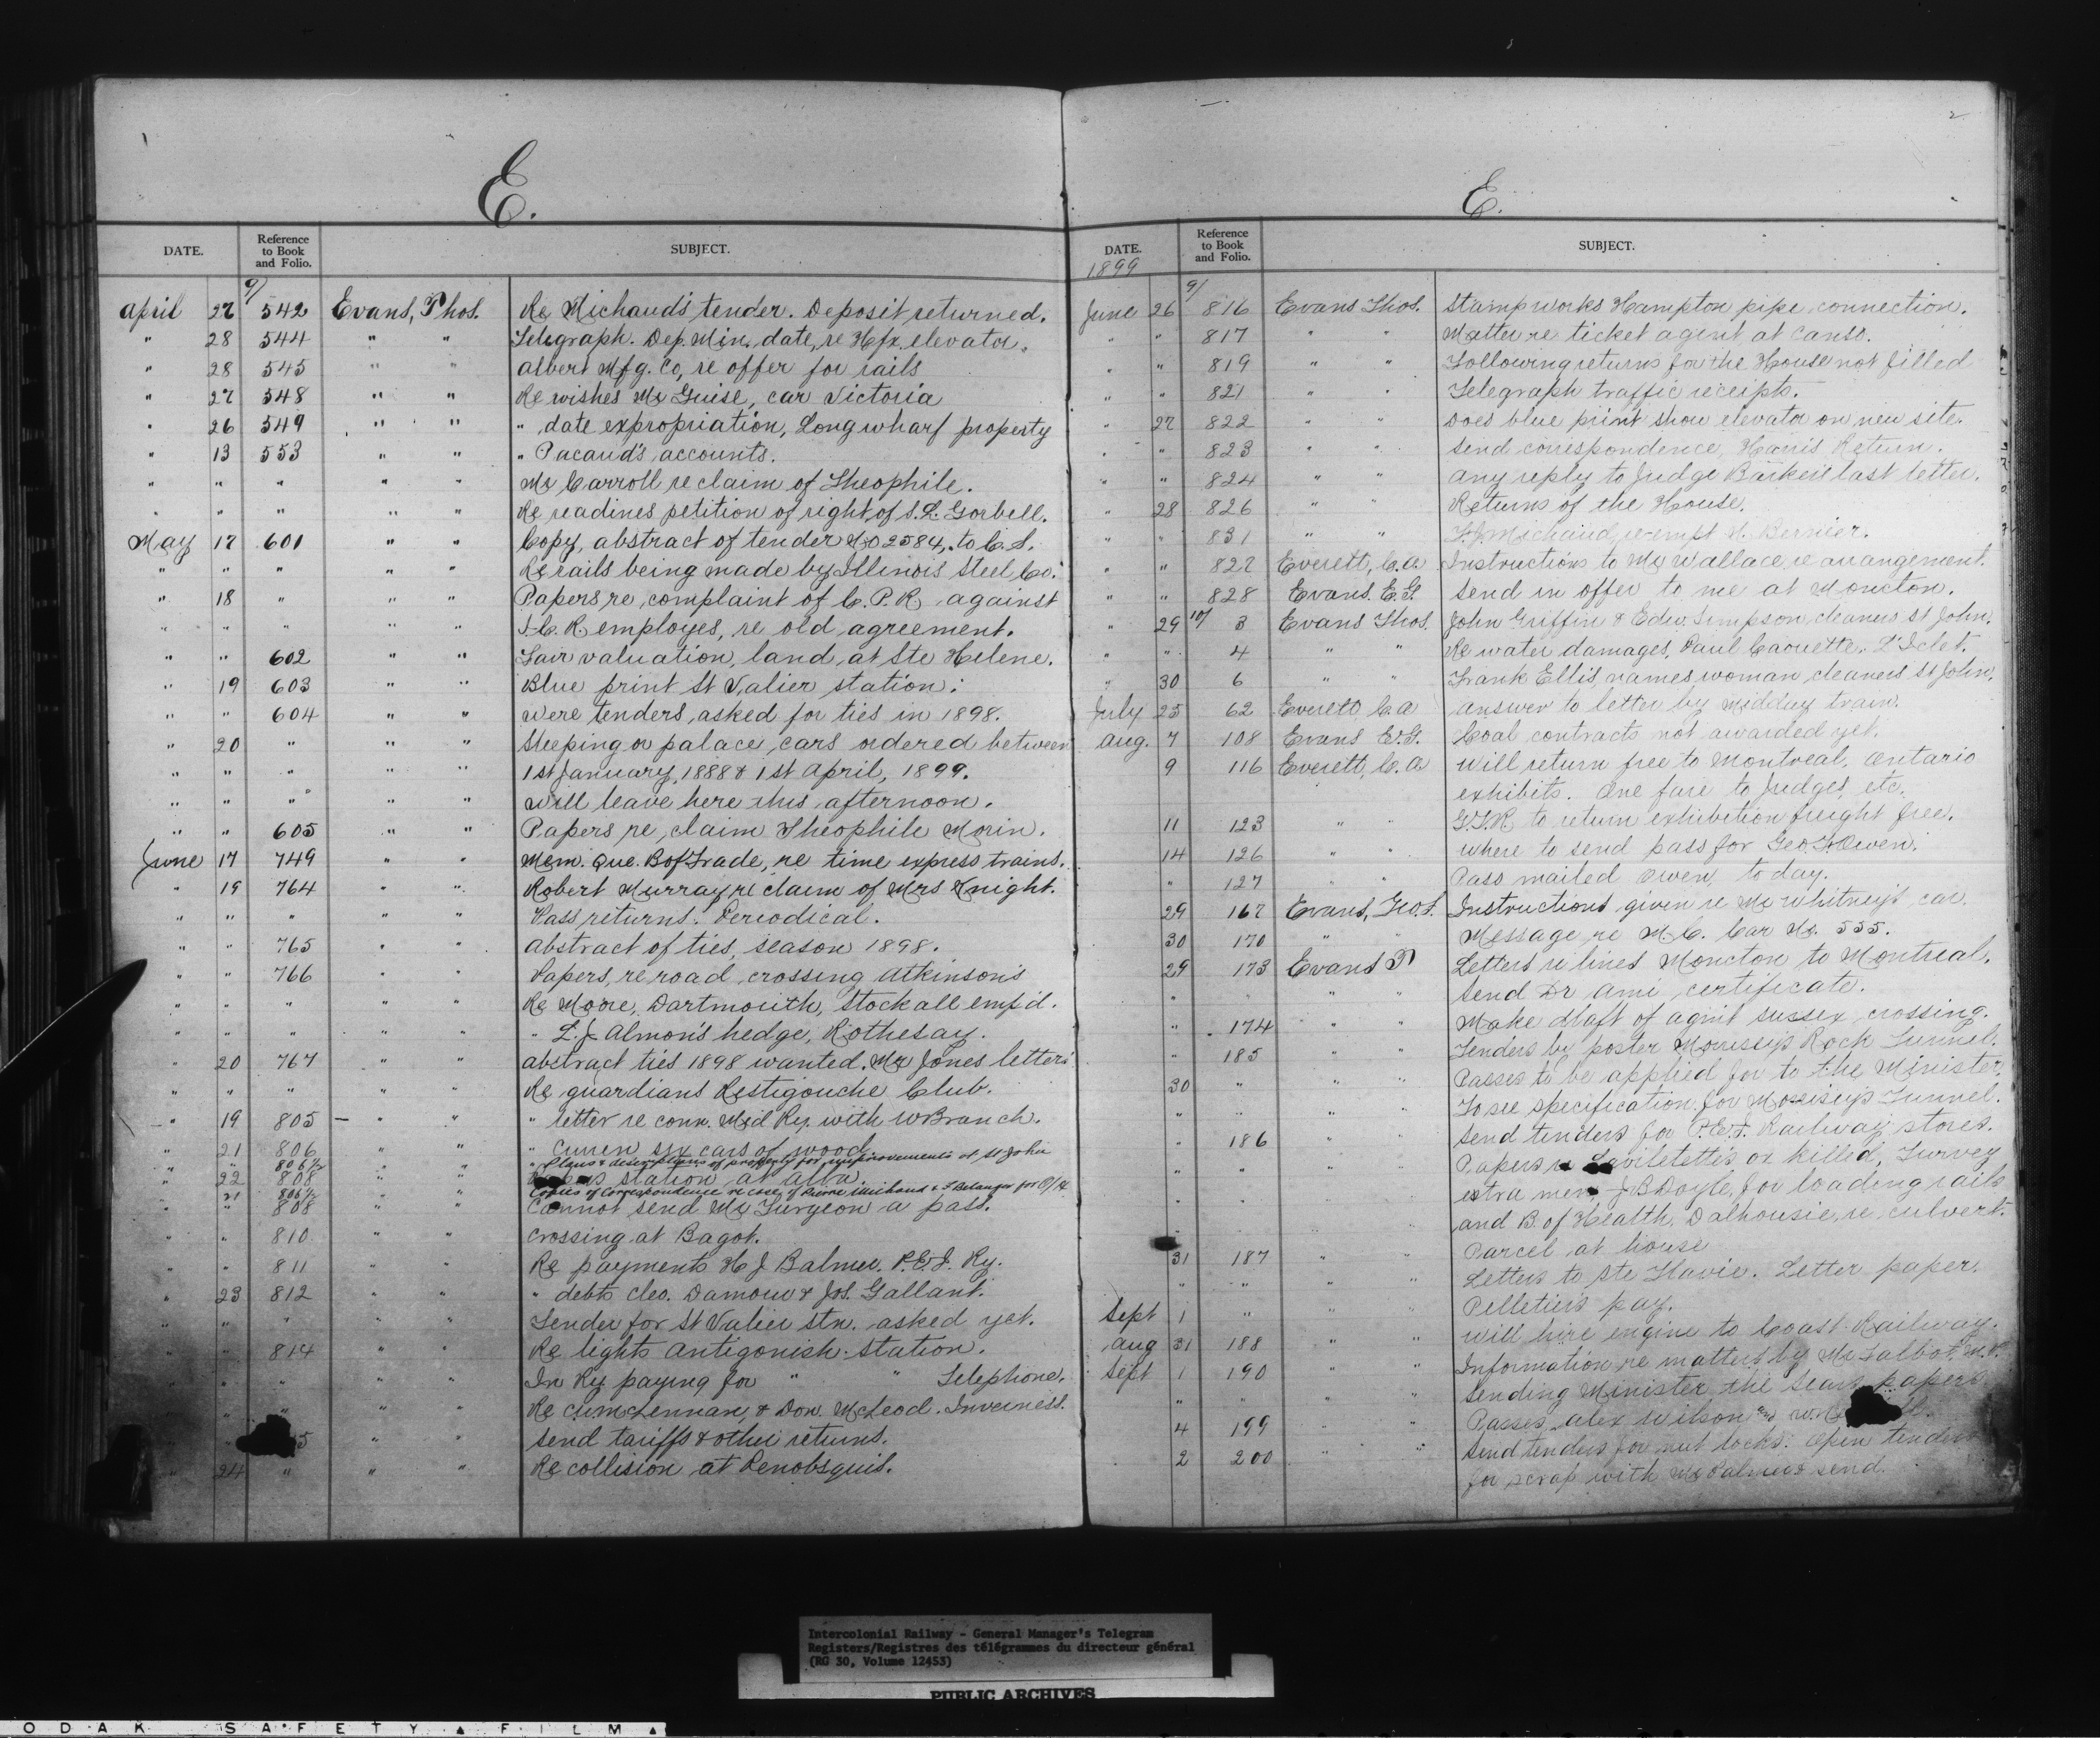 E.
DATE. Reference to Book and Folio. SUBJECT.
9/
April 27 542 Evans, Thos. Re Michaud's tender. Deposit returned.
" 28 544 " " Telegraph. Dep. Min. date, re Hfx. elevator.
" 28 545 " " Albert Mfg. Co, re offer for rails
" 27 548 " " Re wishes Mr Guise, car Victoria
" 26 549 " " " date expropriation, Longwharf property
" 13 553 " " " Pacaud's accounts.
" " " " " Mr Carroll re claim of Theophile.
" " " " " Re readines petition of right of S. L. Gorbell.
May 17 601 " " Copy, abstract of tender No 2584, to C. S.
" " " " " Re rails being made by Illinois Steel Co.
" 18 " " " Papers re complaint of C. P. R. against
" " " " " I. C. R employes, re old agreement.
" " 602 " " Fair valuation, land, at Ste Helene.
" 19 603 " " Blue print St Valier station.
" " 604 " " Were tenders asked for ties in 1898.
" 20 " " " Sleeping or palace cars ordered between
" " " " " 1st January, 1888 & 1st April, 1899.
" " " " " Will leave here this afternoon.
" " 605 " " Papers re claim Theophile Morin.
June 17 749 " " Mem. Que. B of Trade, re time express trains.
" 19 764 " " Robert Murray re claim of Mrs Knight.
" " " " " Pass returns. Periodical.
" " 765 " " Abstract of ties, season 1898.
" " 766 " " Papers, re road crossing Atkinson's
" " " " " Re Moore, Dartmouth, stock all emp'd.
" " " " " " L. J. Almon's hedge, Rothesay.
" 20 767 " " Abstract ties 1898 wanted. Mr Jones letters
" " " " " Re guardians Restigouche Club.
" 19 805 — " " " letter re conn. Mid Ry. with W Branch.
" 21 806 " " " Curren six cars of wood
" " 806½ " " " Plans & descriptions of property for improvements at St John
" 22 808 " " station at alba
" 21 806½ " " Copies of Correspondence re case of Pierre Michaud & F Belanger for
" " 808 " " Cannot send Mr Turgeon a pass.
" " 810 " " Crossing at Bagot.
" " 811 " " Re payments H J Balmer. P.E.I. Ry.
" 23 812 " " " debts Cleo. Damour & Jos. Gallant.
" " " " " Tender for St Valier stn. asked yet.
" " 814 " " Re lights Antigonish station.
" " " " " In Ry paying for " " Telephone.
" " " " " Re McLennan, & Don. McLeod. Inverness.
" 5 " " Send tariffs & other returns.
" 24 " " " Re collision at Penobsquis.
2
E.
DATE. Reference to Book and Folio. SUBJECT.
1899 9/
June 26 816 Evans Thos. Stamp works Hampton pipe connection.
" " 817 " " Matter re ticket agent at Canso.
" " 819 " " Following returns for the House not filled
" " 821 " " Telegraph traffic receipts.
" 27 822 " " Does blue print show elevator on new site.
" " 823 " " Send correspondence, Harris Return.
" " 824 " " Any reply to Judge Barker's last letter.
" 28 826 " " Returns of the House.
" " 831 " " Michaud, re empt. Bernier.
" " 827 Everett, C. A. Instructions to Mr Wallace, re arrangement.
" " 828 Evans. E. G Send in offer to me at Moncton.
" 29 10/ 3 Evans Thos. John Griffin & Edw. Simpson, cleaners St John.
" " 4 " " Re water damages, Paul Caouette. L'Islet.
" 30 6 " " Frank Ellis, names woman cleaners St John.
July 25 62 Everett C. A Answer to letter by midday train.
Aug. 7 108 Evans E. G. Coal contracts not awarded yet.
9 116 Everett, C. A Will return free to Montreal, Ontario
exhibits. One fare to Judges, etc.
11 123 " " G. T. R to return exhibition freight free.
14 126 " " Where to send pass for Geo. F. Owen.
" 127 " " Pass mailed Owen, today.
29 167 Evans, Geo. F. Instructions given re Mr Whitney's car.
30 170 " " Message re M. C. Car No. 555.
29 173 Evans T Letters re lines Moncton to Montreal.
" " " " Send Dr Ami certificate.
" 174 " " Make draft of agmt Sussex crossing.
" 185 " " Tenders by poster Morrissy's Rock Tunnel.
30 " " " Passes to be applied for to the Minister,
" " " " To see specification for Morrissy's Tunnel.
" 186 " " Send tenders for P.E.I. Railway stores.
" " " " Papers re ox killed, Survey
" " " " extra men, J B Doyle, for loading rails
" and B. of Health, Dalhousie, re culvert.
31 187 " " Parcel at house
" " " " Letters to Ste Flavie. Letter paper.
Sept 1 " " " Pelletier's pay.
Aug 31 188 " " Will hire engine to Coast Railway.
Sept 1 190 " " Information re matters by Mr Talbot, M.P.
" " " " Sending Minister the papers
4 199 " " Passes, Alex Wilson and
2 200 " " Send tenders for nut locks. Open tenders
for scrap with Mr Palmer & send.
Intercolonial Railway - General Manager's Telegram
Registers/Registres des télégrammes du directeur général
(RG 30, Volume 12453)
PUBLIC ARCHIVES
ODAK SAFETY ▲ FILM ▲